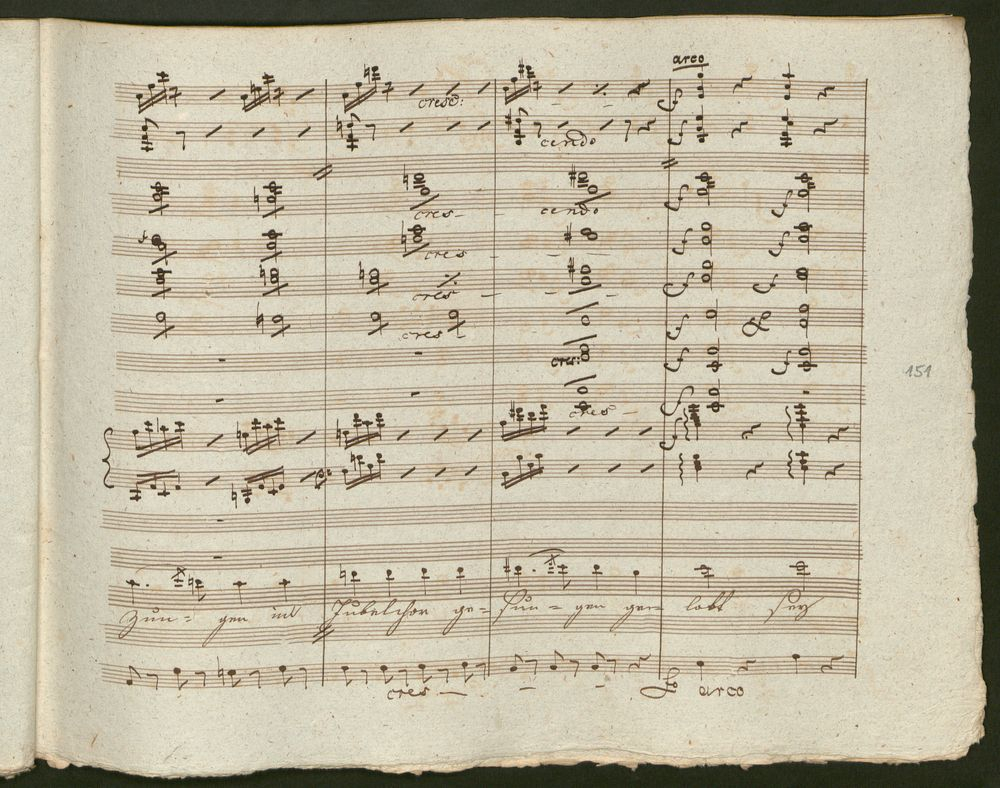 arco
cresc:
cendo
cres- cendo
cres
cres
cres
cres:
151
cres
Zun= gen im Jubelchor ge= sun= gen ge= lobt sey
cres arco